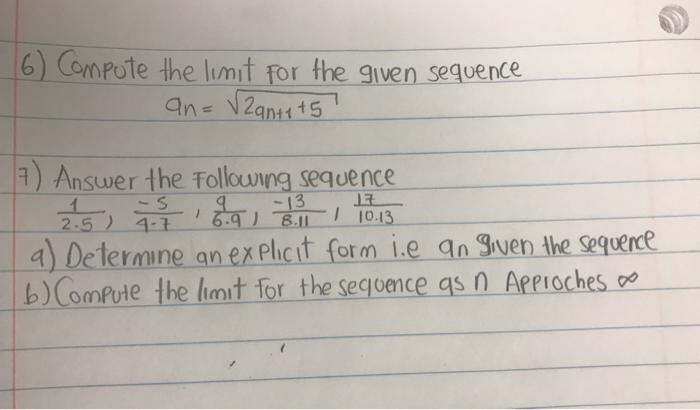 6) Compute the limit For the given sequence
an = √2an+1 +5
7) Answer the Following sequence
1/2.5, -5/4.7, 9/6.9, -13/8.11, 17/10.13
a) Determine an explicit form i.e an given the sequence
b) Compute the limit For the sequence as n Approches ∞